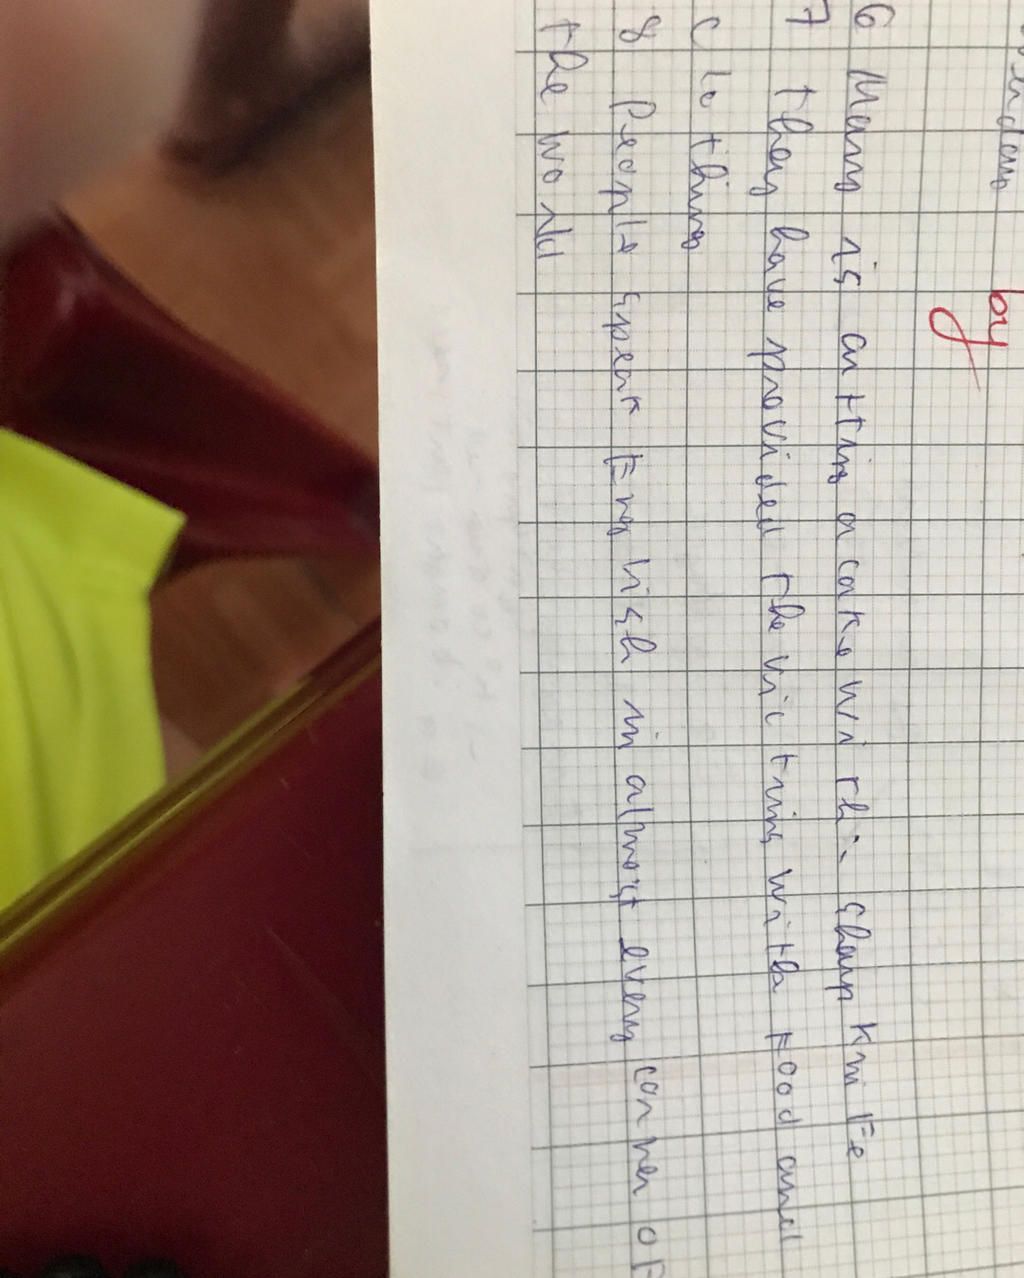 by
6 Mary is cutting a cake with a sharp knife
7 They have provided the victims with food and
clothing
8 People speak English in almost every corner of
the world